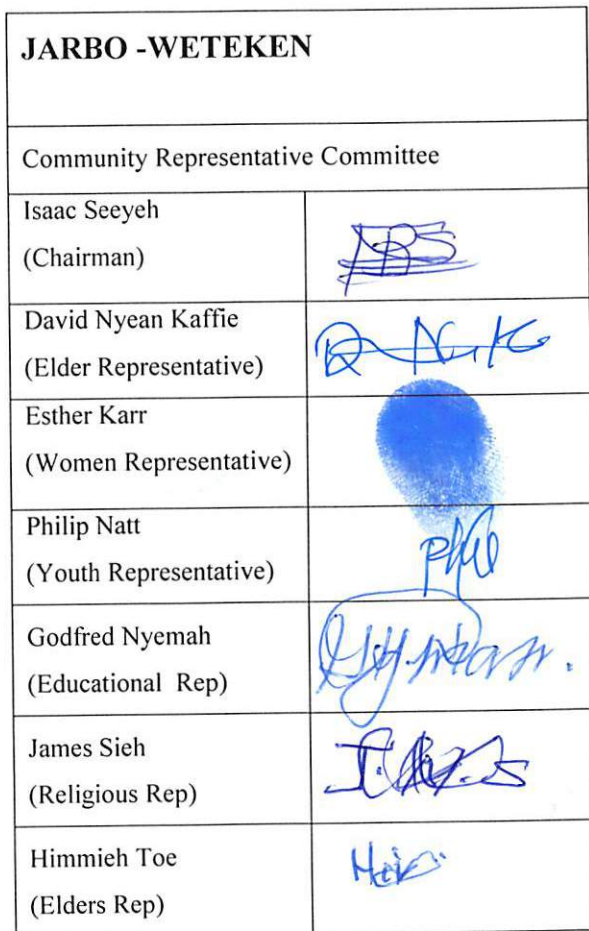 JARBO -WETEKEN
Community Representative Committee
Isaac Seeyeh
(Chairman)
David Nyean Kaffie
(Elder Representative)
Esther Karr
(Women Representative)
Philip Natt
(Youth Representative)
Phil
Godfred Nyemah
(Educational Rep)
James Sieh
(Religious Rep)
Himmieh Toe
(Elders Rep)